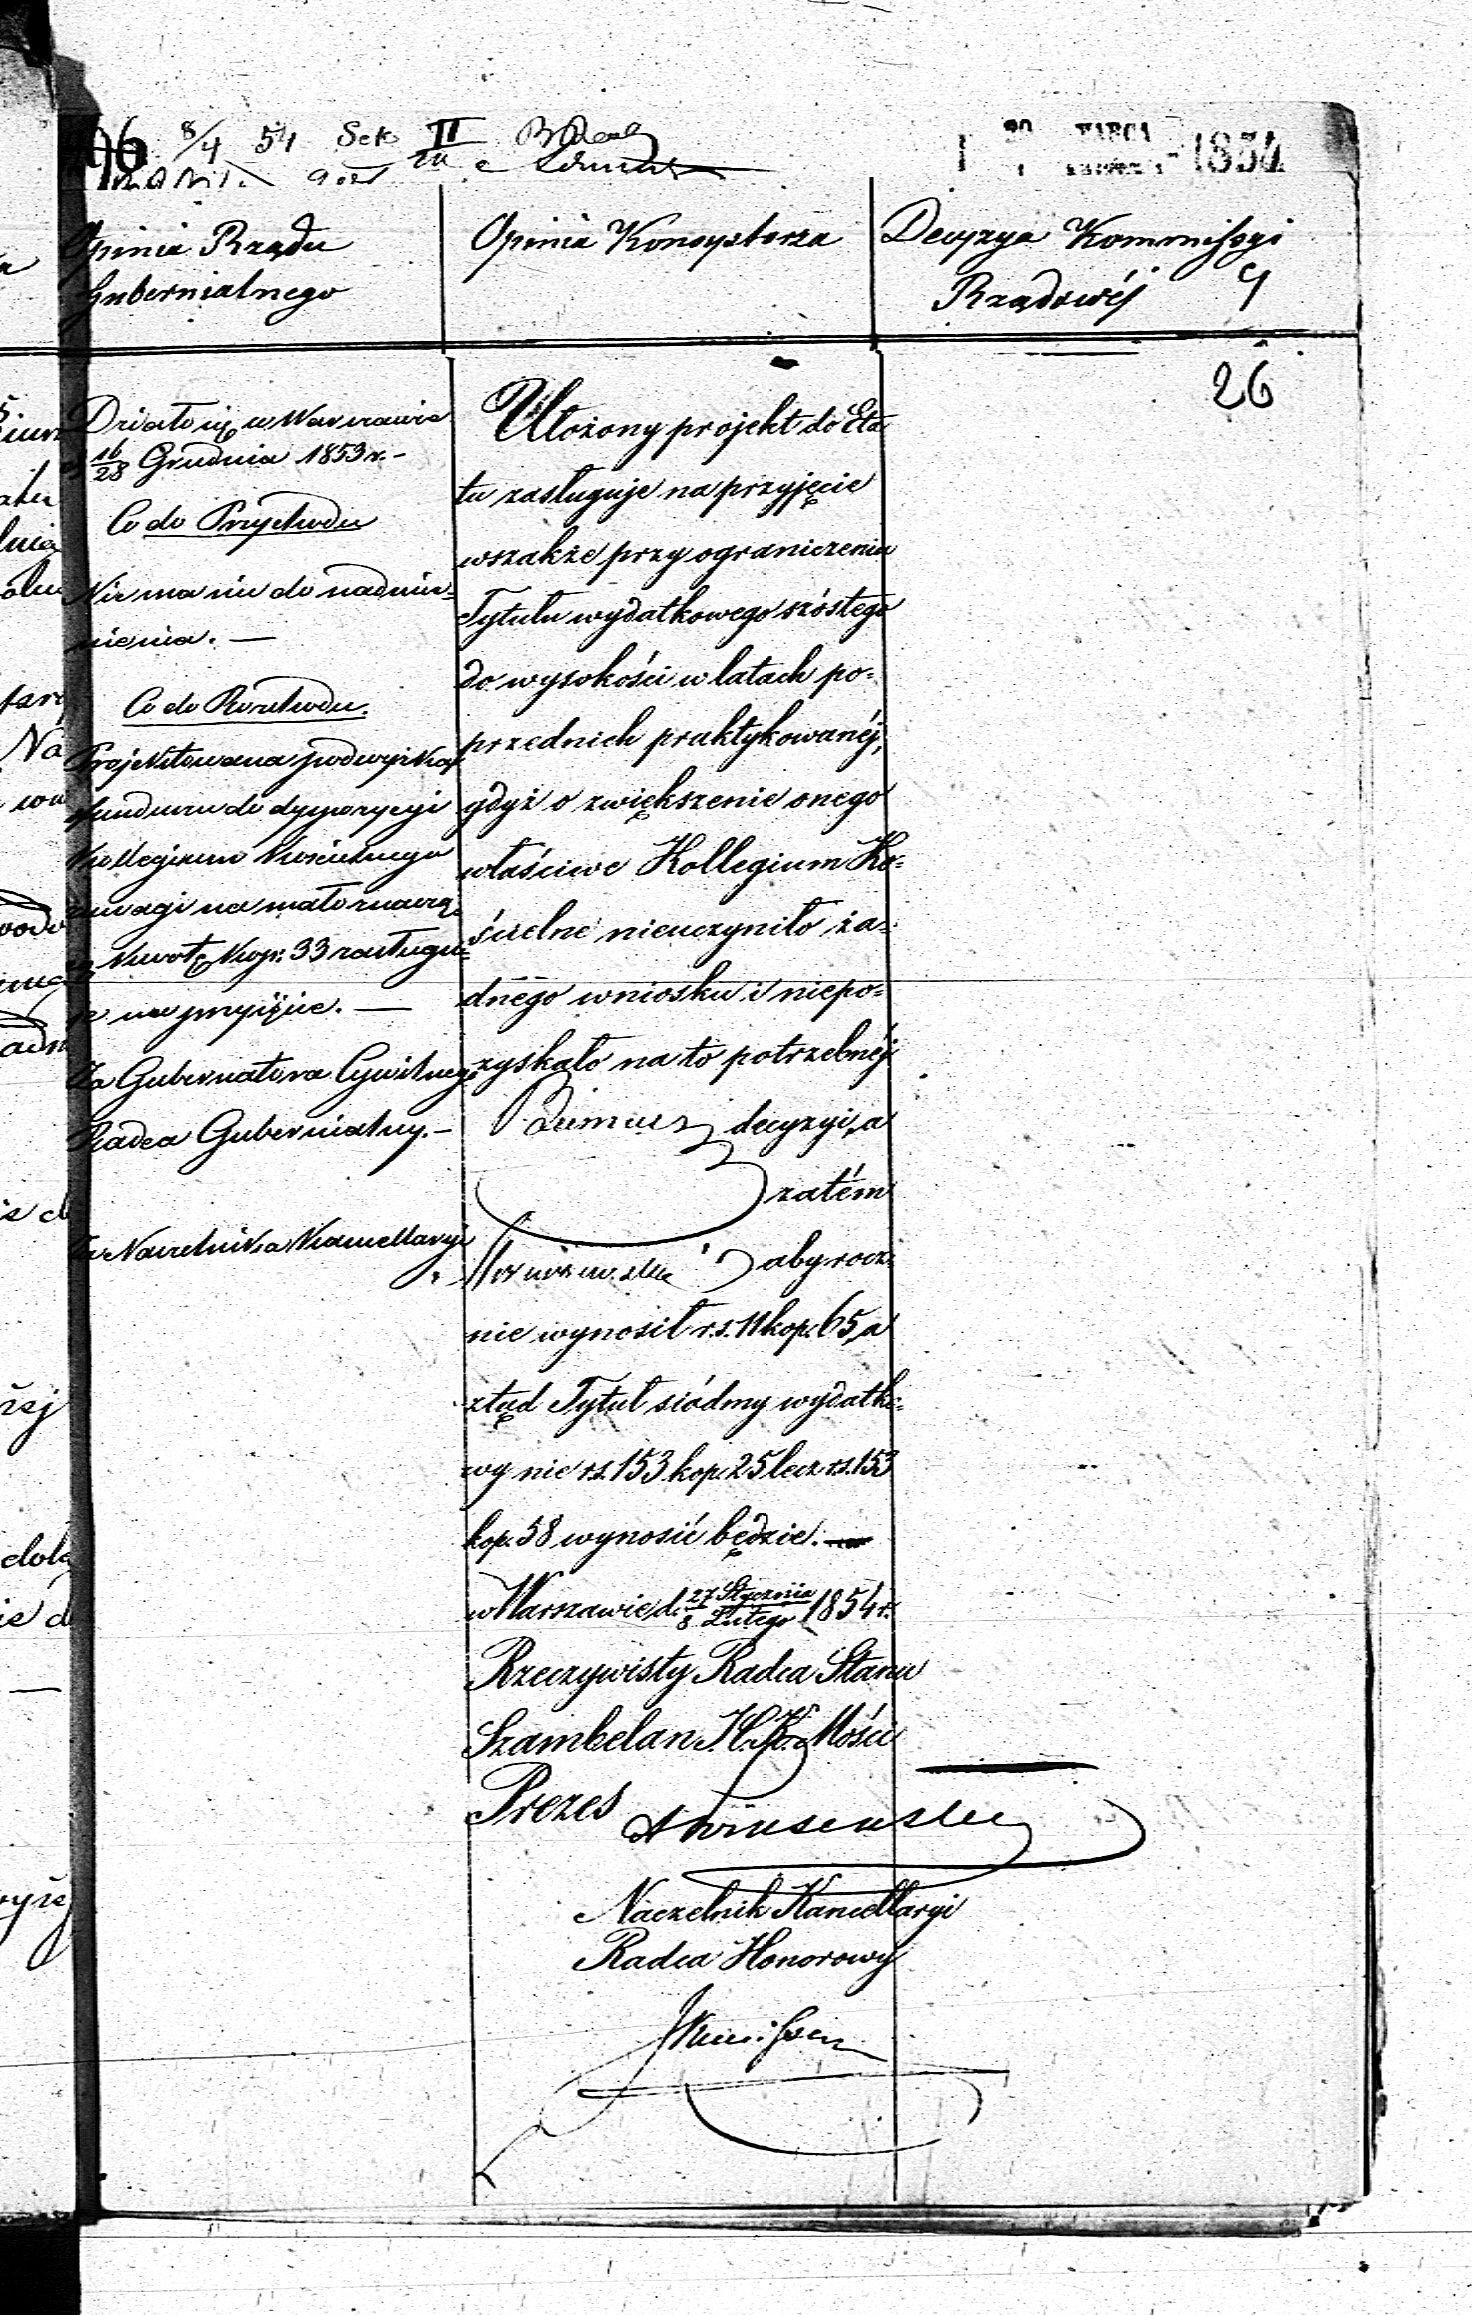 96 8/4 54 Sek II
20 MARCA 1854
Opinia Rządu
Gubernialnego
Opinia Konsystorza
Decyzya Kommissyi
Rządowéj 9
26
Działo się w Warszawie
d 16/28 Grudnia 1853 r. -
Co do Przychodu
Nic ma nic do nadmie=
nienia. —
Co do Rozchodu.
Projektowana podwyżka
funduszu do dyspozycyi
Kollegium Kościelnego
z uwagi na mało znaczą
cą kwotę kop: 33 zasługu=
je na przyjęcie. —
Za Gubernatora Cywilnego
Radca Gubernialny. -
Za Naczelnika Kancellaryi
Ułożony projekt do Eta
tu zasługuje na przyjęcie
wszakże przy ograniczeniu
Tytułu wydatkowego szóstego
do wysokości w latach po=
przednich praktykowanéj,
gdyż o zwiększenie onego
właściwe Kollegium Ko=
ścielne nieuczyniło ża=
dnego wniosku i niepo=
zyskało na to potrzebnéj
decyzyi, a
zatém
aby rocz=
nie wynosił r.s. 11 kop. 65, a
ztąd Tytuł siódmy wydatko=
wy nie r.s. 153 kop. 25 lecz r.s. 153
kop. 58 wynosić będzie. —
w Warszawie d. 27 Stycznia / 8 Lutego 1854 r.
Rzeczywisty Radca Stanu
Szambelan J. C. K. Mości
Prezes
Naczelnik Kancellaryi
Radca Honorowy